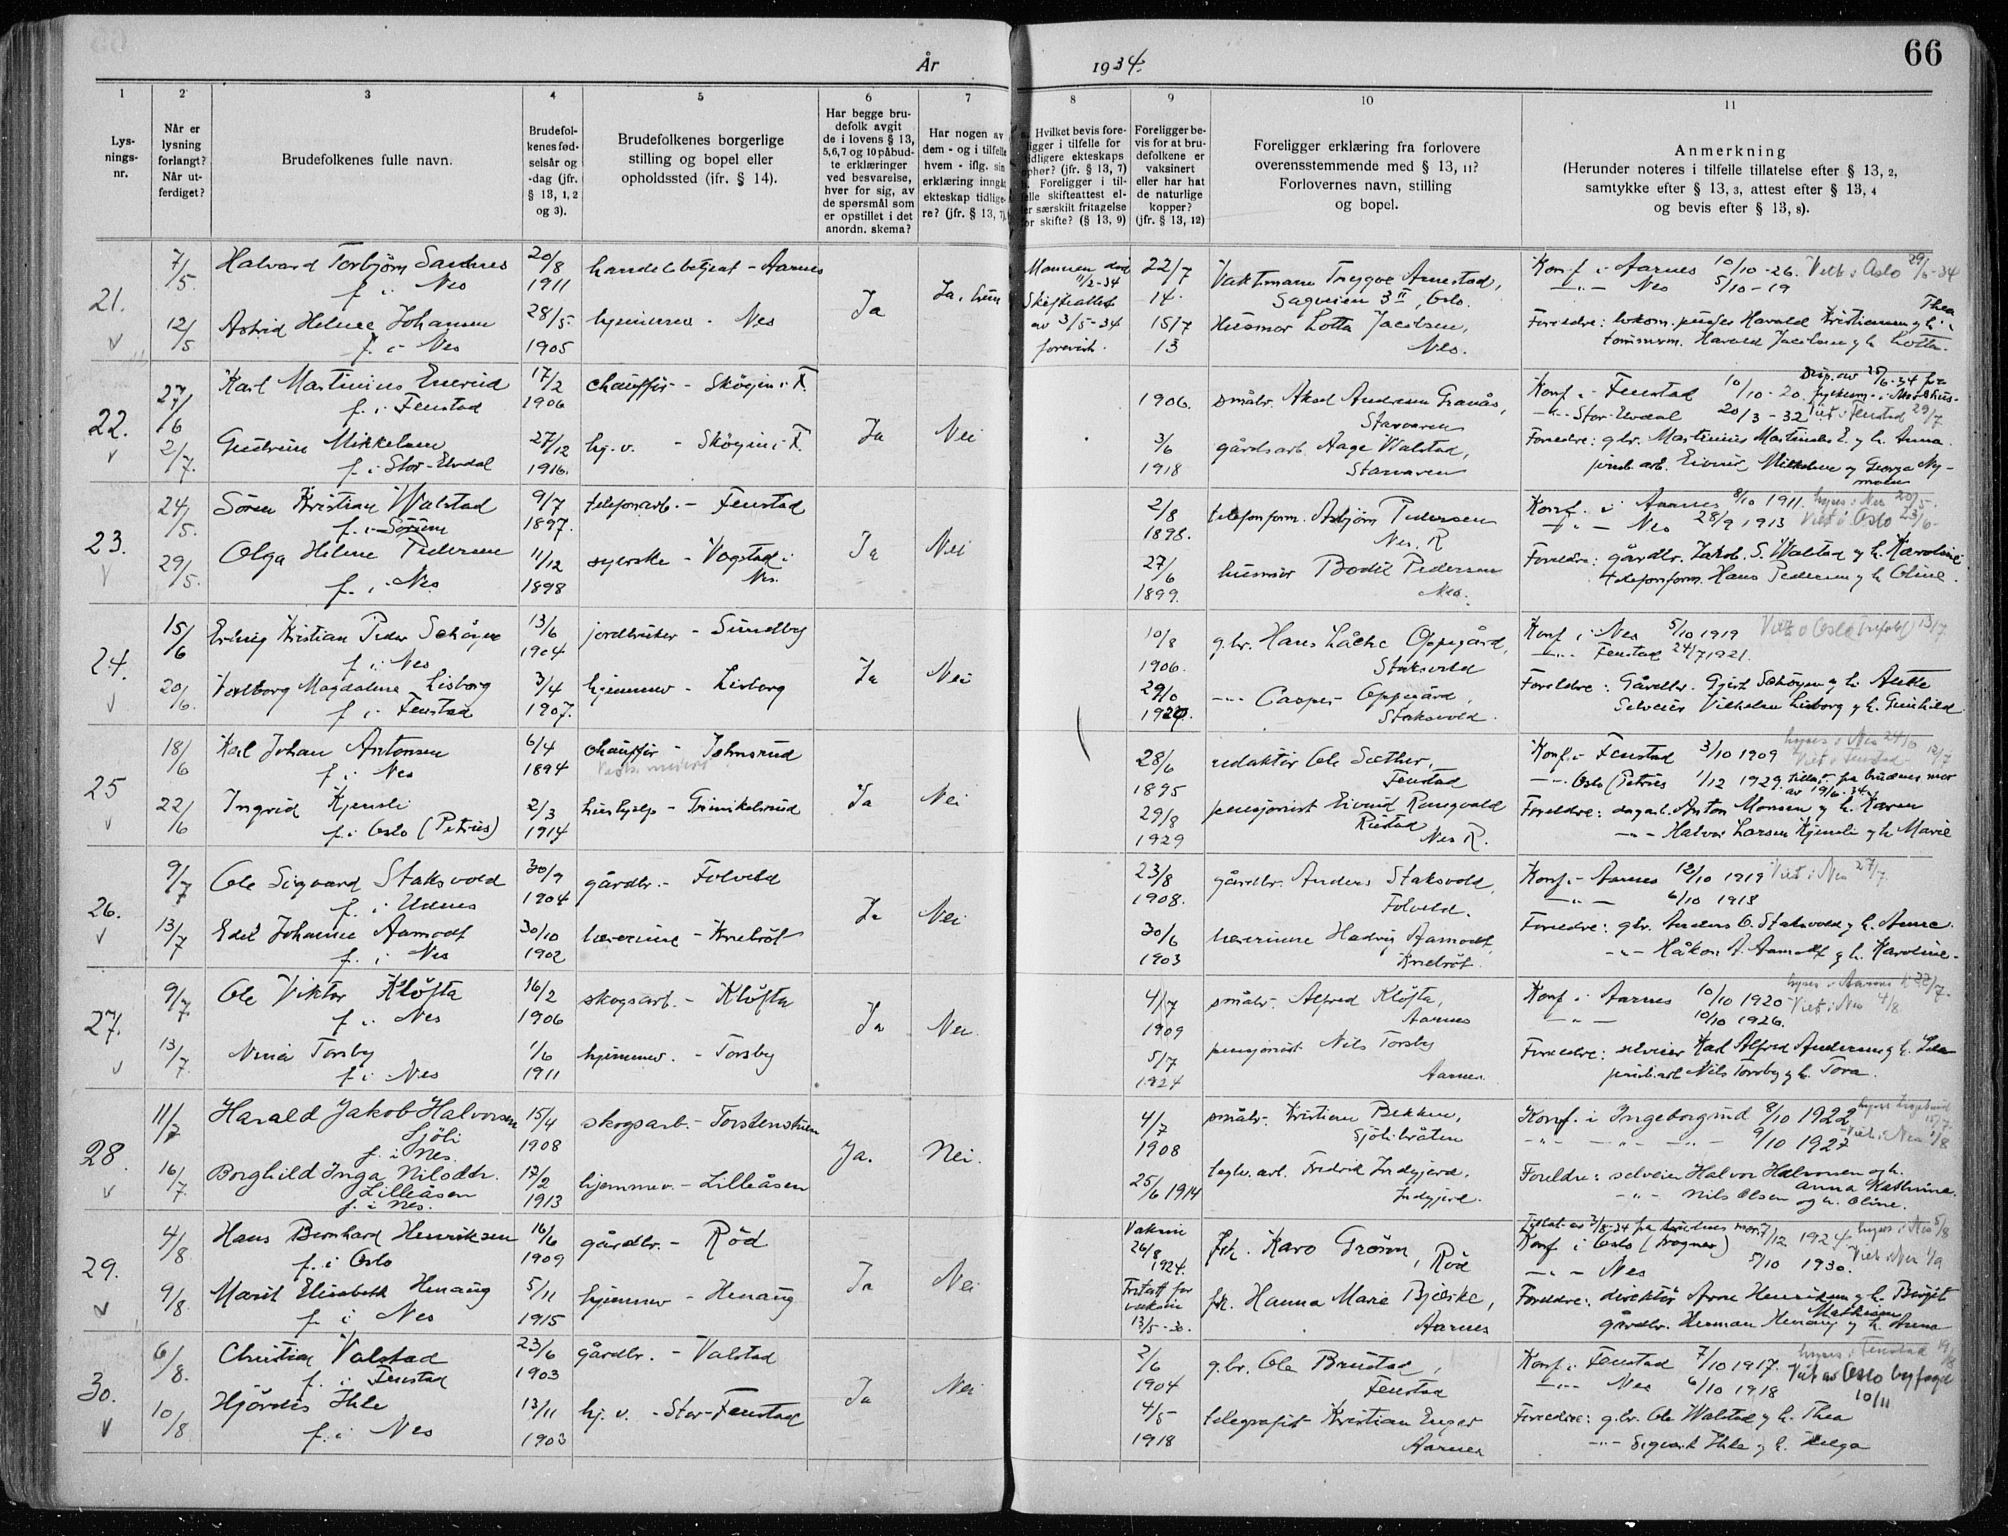 År 1934.
66
1 2 3 4 5 6 7 8 9 10 11
Lys-
nings-
nr.
Når er
lysning
forlangt?
Når ut-
ferdiget?
Brudefolkenes fulle navn.
Brudefol-
kenes fød-
selsår og
-dag (jfr.
§ 13, 1, 2
og 3).
Brudefolkenes borgerlige
stilling og bopel eller
opholdssted (jfr. § 14).
Har begge bru-
defolk avgit
de i lovens § 13,
5,6,7 og 10 påbud-
te erklæringer
ved besvarelse,
hver for sig, av
de spørsmål som
er opstillet i det
anordn. skema?
Har nogen av
dem - og i tilfelle
hvem - iflg. sin
erklæring inngått
ekteskap tidlige-
re? (jfr. § 13, 7).
Hvilket bevis fore-
ligger i tilfelle for
tidligere ekteskaps
opher? (jfr. § 13, 7)
Foreligger i til-
felle skifteattest el-
ler særskilt fritagelse
for skifte? (§ 13, 9)
Foreligger be-
vis for at bru-
defolkene er
vaksinert
eller har hat
de naturlige
kopper?
(jfr. § 13, 12)
Foreligger erklæring fra forlovere
overensstemmende med § 13, 11?
Forlovernes navn, stilling
og bopel.
Anmerkning
(Herunder noteres i tilfelle tillatelse efter § 13, 2,
samtykke efter § 13, 3, attest efter § 13, 4
og bevis efter § 13, 8).
21.
7/5. Halvard Torbjørn Sandnes 20/8 handelsbetjent - Aarnes
f. i Nes 1911
12/5 Astrid Helene Johansen 28/5. hjemmev. - Nes Ja
f. i Nes 1905
Mannen død
11/2-34
Skifteattest
av 3/5-34
forevist.
22/7 Vaktmann Trygve Arnestad,
14. Sagveien 3 II, Oslo.
15/7 Husmor Lotta Jacobsen,
13 Nes.
Konf. i Aarnes 10/10-26. Viet i Oslo 29/6-34
-"- Nes 5/10-19
Thea
Foreldre: lokom. pusser Harald Kristiansen og h.
tømmerm. Harald Jacobsen og h. Lotta.
22.
27/6 Karl Martinius Enerud 17/2 chauffør - Skøgin i F.
f. i Fenstad 1906
2/7. Gudrun Mikkelsen 27/12 hj. v. - Skøgin i F. Ja Nei
f. i Stor-Elvdal 1916.
1906. småbr. Aksel Andersen Granås,
Starvaren
3/6 gårdsarb. Aage Walstad,
1918 Starvaren
Disp. av 25/6-34 fra
Konf. i Fenstad 10/10-20. fylkesm. i Akershus-
-"- Stor-Elvdal 20/3-32 Viet i Fenstad 29/7.
Foreldre: gbr. Martinius Martinsen E. og h. Anna
jernb. arb. Eivind Mikkelsen og Georga Ny-
moen
23.
24/5. Søren Kristian Walstad 9/7 telefonarb. - Fenstad
f. i Sørum 1897.
29/5. Olga Hilma Pedersen 11/12 syerske - Vogstad i Ja Nei
f. i Nes 1898 Nes.
2/8 telefonform. Asbjørn Pedersen
1898. Nes, R
27/6 husmor Bodil Pedersen
1899. Nes.
Konf. i Aarnes 8/10 1911. lyses i Nes 20/5.
-"- Nes 28/9 1913 Viet i Oslo 23/6-
Foreldre: gårdbr. Jakob S. Walstad og h. Karoline
telefonform. Hans Pedersen og h. Oline.
24.
15/6 Erling Kristian Peder Schøyen 13/6 jordbruker - Sundby
f. i Nes 1904
20/6. Valborg Magdalene Lisborg 3/4 hjemmev - Lisborg Ja Nei
f. i Fenstad 1907.
10/8 g.br. Hans Låche Oppegård,
1906. Staksvold
29/0 -"- Casper Oppegård,
1920. Staksvold.
Konf. i Nes 5/10 1919 Viet i Oslo 13/7.
-"- Fenstad 24/7 1921.
Foreldre: Gårdbr. Gjert Schøyen og h. Anette
Selveier Vilhelm Lisborg og h. Gunhild
25
18/6 Karl Johan Antonsen 6/4 chauffør - Johnsrud
f. i Nes 1894
22/6 Ingrid Kjensli 2/3 hushjelp - Grinikelsrud Ja Nei
f. i Oslo (Petrus) 1914
28/6 redaktør Ole Sæther,
1895 Fenstad
29/8 pensjonist Eivind Rangvald
Rustad
1929 Nes R.
Konf. i Fenstad 3/10 1909 lyses i Nes 24/6 12/7
Viet i Fenstad
-"- Oslo (Petrus 1/12 1929. tillat. fra brudens mor
av 19/6-34.
Foreldre: dagarb. Anton Monsen og h. Karen
-"- Halvor Larsen Kjensli og h. Marie
26.
9/7 Ole Sigvard Staksvold 30/9 gårdbr. - Folvild
f. i Udnes 1904
13/7 Edel Johanne Aamodt 30/10 lærerinne - Knebrøt Ja Nei
f. i Nes 1902
23/8 gårdbr. Anders Staksvold,
1908. Folvild.
30/6 lærerinne Hedvig Aamodt,
1903 Knebrøt.
Konf. i Aarnes 12/10 1919 Viet i Nes 27/7.
-"- 6/10 1918
Foreldre: gbr. Anders O. Staksvold og h. Anne
-"- Håkon A. Aamodt og h. Karoline.
27.
9/7. Ole Viktor Kløfta 16/2 skogsarb. - Kløfta
f. i Nes 1906
13/7. Nina Torsby 1/6 hjemmev. - Torsby Ja Nei
f. i Nes 1911
4/7 småbr. Alfred Kløfta,
1909 Aarnes
5/7 pensjonist Nils Torsby
1924 Aarnes.
lyses i Aarnes 22/7.
Konf i Aarnes 10/10 1920 Viet i Nes 4/8
-"- 10/10 1926.
Foreldre: selveier Karl Alfred Andersen og h.
jernb. arb Nils Torsby og h. Tora.
28.
11/7 Harald Jakob Halvorsen 15/4 skogsarb. - Torstensbruen
Sjøli 1908
f. i Nes.
16/7 Borghild Inga Nilsdtr. 17/2 hjemmev - Lilleåsen Ja. Nei.
Lilleåsen 1913
f. i Nes.
4/7 småbr. Kristian Bekken,
1908 Sjølibråten
25/6 1914 teglv. arb. Fredrik Indgjerd,
Indgjerd.
Konf. i Ingeborgrud 8/10 1922
-"- -"- 9/10 1927 Viet i Nes
Foreldre: selveier Halvor Halvorsen og h.
Anna Kathrine.
-"- Nils Olsen og h. Oline.
29.
4/8 Hans Bernhard Henriksen 16/6 gårdbr. - Rød
f. i Oslo 1909
9/8 Marit Elisabeth Henaug 5/11 hjemmev - Henaug Ja Nei
f. i Nes 1915
Vaksin
26/8
1924. frk. Karo Grøsen, Rød
Fritatt for
vaksine
13/5-30. frk. Hanna Marie Bjerke,
Aarnes
Tillat. av 2/8-34 fra brudens mor. lyses i Nes 5/8
Konf i Oslo (Frogner) 7/12 1924 Viet i Nes 1/9
-"- Nes 5/10 1930.
Foreldre: direktør Arne Henriksen og h. Birgit
Mathisen
gårdbr. Herman Henaug og h. Anna
30.
6/8. Christian Valstad 23/6 gårdbr. - Valstad
f. i Fenstad 1903
10/8 Hjørdis Ihle 13/11 hj. v. - Stor-Fenstad Ja Nei
f. i Nes 1903
2/6 g.br. Ole Brustad,
1904 Fenstad
4/5- telegrafist Kristian Enger
1918 Aarnes
lyses i Fenstad 19/8
Konf. i Fenstad 7/10 1917. Viet av Oslo byfogd
-"- Nes 6/10 1918 10/11
Foreldre: g.br. Ole Walstad og h. Thea
-"- Sigvart Ihle og h. Helga